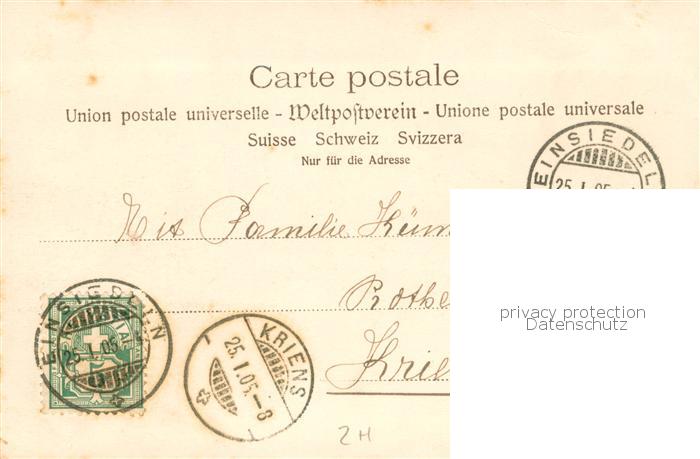 Carte postale
Union postale universelle - Weltpostverein - Unione postale universale
Suisse Schweiz Svizzera
Nur für die Adresse
EINSIEDEL
25.I.05
Familie
Rothe
Krie
privacy protection
Datenschutz
EINSIEDELN
25.I.05.
KRIENS
25.I.05.-8
2H